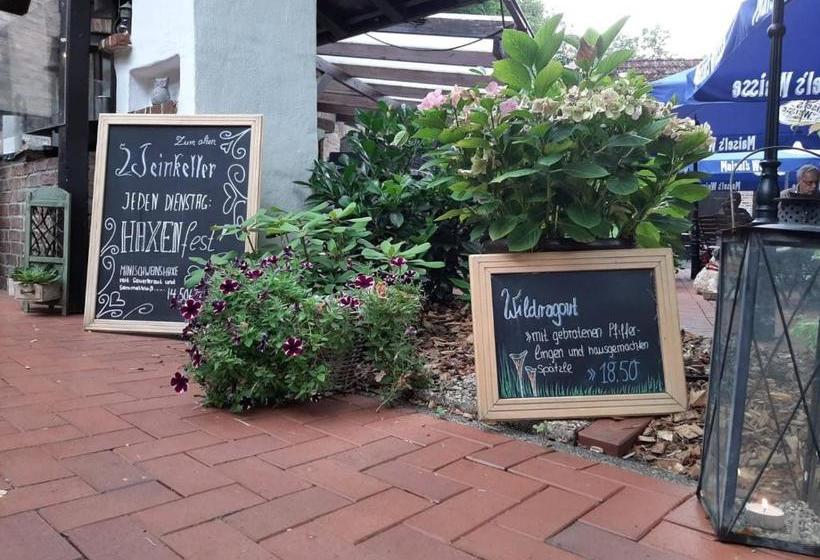 Zum alten
Weinkeller
JEDEN DIENSTAG:
HAXENfest
MINISCHWEINSHAXE
mit Sauerkraut und
Semmelkloß.....14.50€
Wildragout
»mit gebratenen Pfiffer-
lingen und hausgemachten
Spätzle » 18.50
Maisel's Weisse
Maisel's
Maisel's Weisse